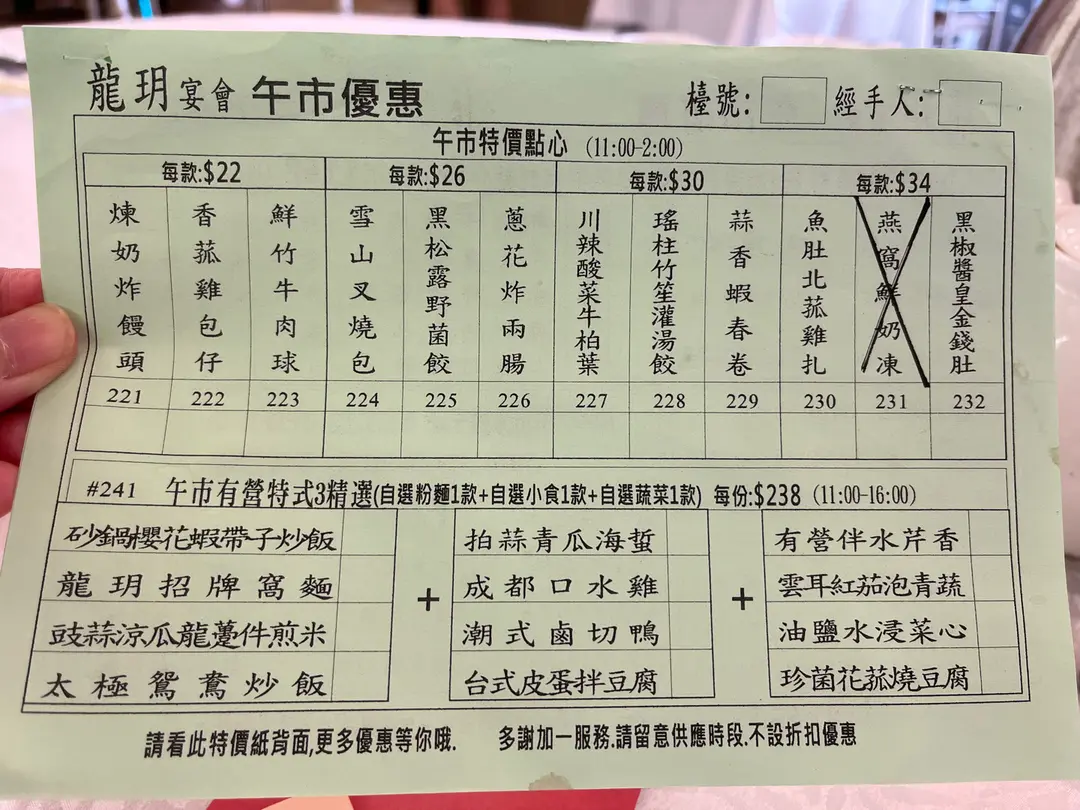 龍玥宴會 午市優惠 檯號: 經手人:
午市特價點心 (11:00-2:00)
每款:$22 每款:$26 每款:$30 每款:$34
煉奶炸饅頭
香菰雞包仔
鮮竹牛肉球
雪山叉燒包
黑松露野菌餃
蔥花炸兩腸
川辣酸菜牛柏葉
瑤柱竹笙灌湯餃
蒜香蝦春卷
魚肚北菰雞扎
燕窩鮮奶凍
黑椒醬皇金錢肚
221 222 223 224 225 226 227 228 229 230 231 232
#241 午市有營特式3精選(自選粉麵1款+自選小食1款+自選蔬菜1款) 每份:$238 (11:00-16:00)
砂鍋櫻花蝦帶子炒飯
龍玥招牌窩麵
豉蒜涼瓜龍躉件煎米
太極鴛鴦炒飯
+
拍蒜青瓜海蜇
成都口水雞
潮式鹵切鴨
台式皮蛋拌豆腐
+
有營伴水芹香
雲耳紅茄泡青蔬
油鹽水浸菜心
珍菌花菰燒豆腐
請看此特價紙背面,更多優惠等你哦. 多謝加一服務.請留意供應時段.不設折扣優惠